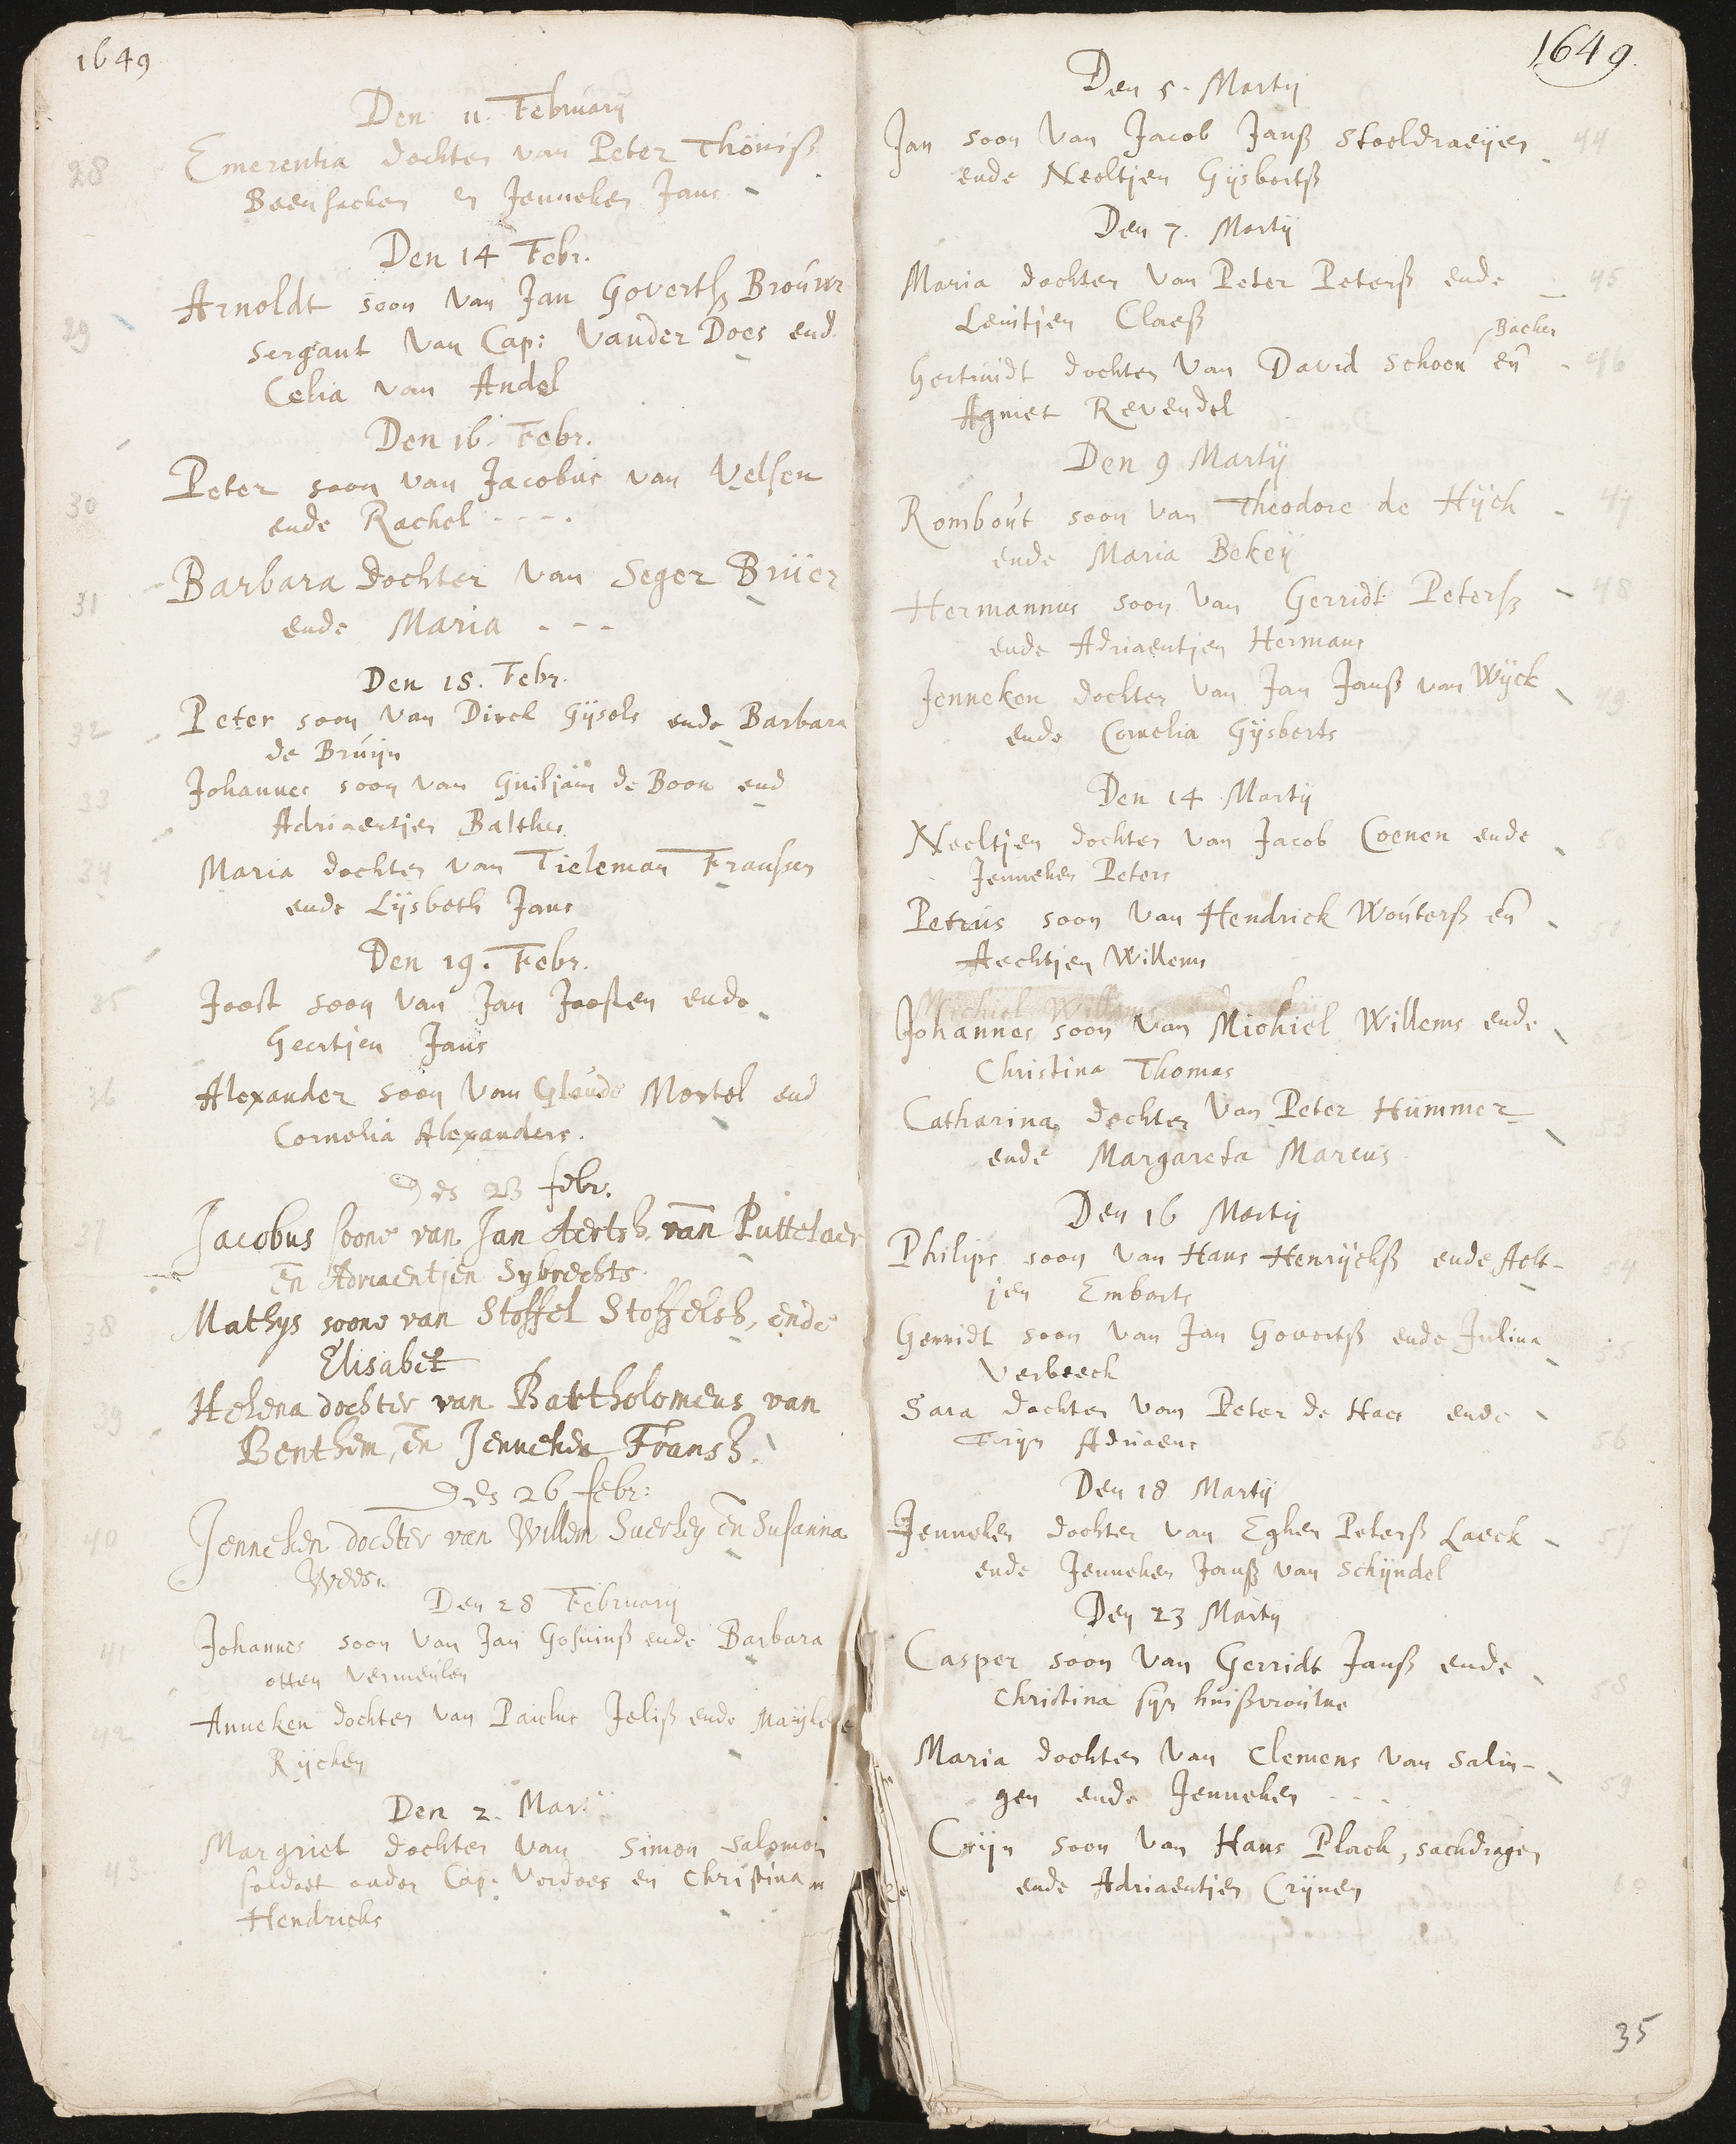 1649
Den 11. February
28
Emerentia dochter van Peter Thöniß
Beenhacker en Jenneken Jans
Den 14 Febr.
29
Arnoldt soon van Jan Govertß Brouwr
sergant van Cap: vander Does end
Celia van Andel
Den 16. Febr.
30
Peter soon van Jacobus van Velsen
ende Rachel - - - .
31
Barbara dochter van Seger Brüer
ende Maria - - -
Den 18. Febr.
32
Peter soon van Dirck Gijsels ende Barbara
de Bruijn
33
Johannes soon van Guiljam de Boon end
Adriaentjen Balthes
34
Maria dochter van Tieleman Franssen
ende Lijsbeth Jans
Den 19. Febr.
35
Joost soon van Jan Joosten ende
Geertjen Jans
36
Alexander soon van Glaude Mortel end
Cornelia Alexanders.
Des 23 febr.
37
Jacobus soone van Jan Aertsz. van Puttelaer
En Adriaentjen Sybrechts.
38
Mathys soone van Stoffel Stoffelsz, ende
Elisabet
39
Helena dochter van Bartholomeus van
Benthem, en Jenneken Fransz.
Des 26 febr:
40
Jenneken dochter van Willem Suerley en Susanna
Wees.
Den 28 February
41
Johannes soon van Jan Gosuinß ende Barbara
otten Vermeulen
42
Anneken dochter van Paulus Jeliß ende Mayken
Rijcken
Den 2. Martij
43
Margriet dochter van Simon Salomon
soldaet onder Cap: Verdoes en Christina
Hendricks
1649.
Den 5. Martij
Jan soon van Jacob Janß stoeldraeijer
44
ende Neeltjen Gijsbertß
Den 7. Martij
Maria dochter van Peter Peterß ende
45
Lenitjen Claeß
Backer
Gertruidt dochter van David Schoen en
46
Agniet Revendel
Den 9 Martij
Rombout soon van Theodore de Hijch
47
ende Maria Bekeij
Hermannus soon van Gerridt Peterß
48
ende Adriaentjen Hermans
Jenneken dochter van Jan Janß van Wijck
49
ende Cornelia Gijsberts
Den 14 Martij
Neeltjen dochter van Jacob Coenen ende
50
Jenneken Peters
Petrus soon van Hendrick Wouterß en
51
Aechtjen Willems
Johannes soon van Michiel Willems ende
52
Christina Thomas
Catharina dochter van Peter Hummer
53
ende Margareta Marcus
Den 16 Martij
Philips soon van Hans Henrijckß ende Aelt-
54
jen Embarts
Gerridt soon van Jan Govertß ende Julina
55
Verbeeck
Sara dochter van Peter de Haes ende
56
Trijn Adriaens
Den 18 Martij
Jenneken dochter van Eghen Peterß Laeck
57
ende Jenneken Janß van Schijndel
Den 23 Martij
Casper soon van Gerridt Janß ende
58
Christina sijn huißvroutne
Maria dochter van Clemens van Salin-
59
gen ende Jenneken - - -
Crijn soon van Hans Plack, sackdrager
60
ende Adriaentjen Crijnen
35